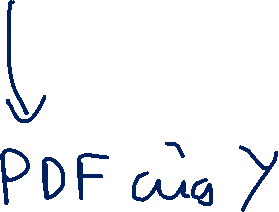 PDF của Y